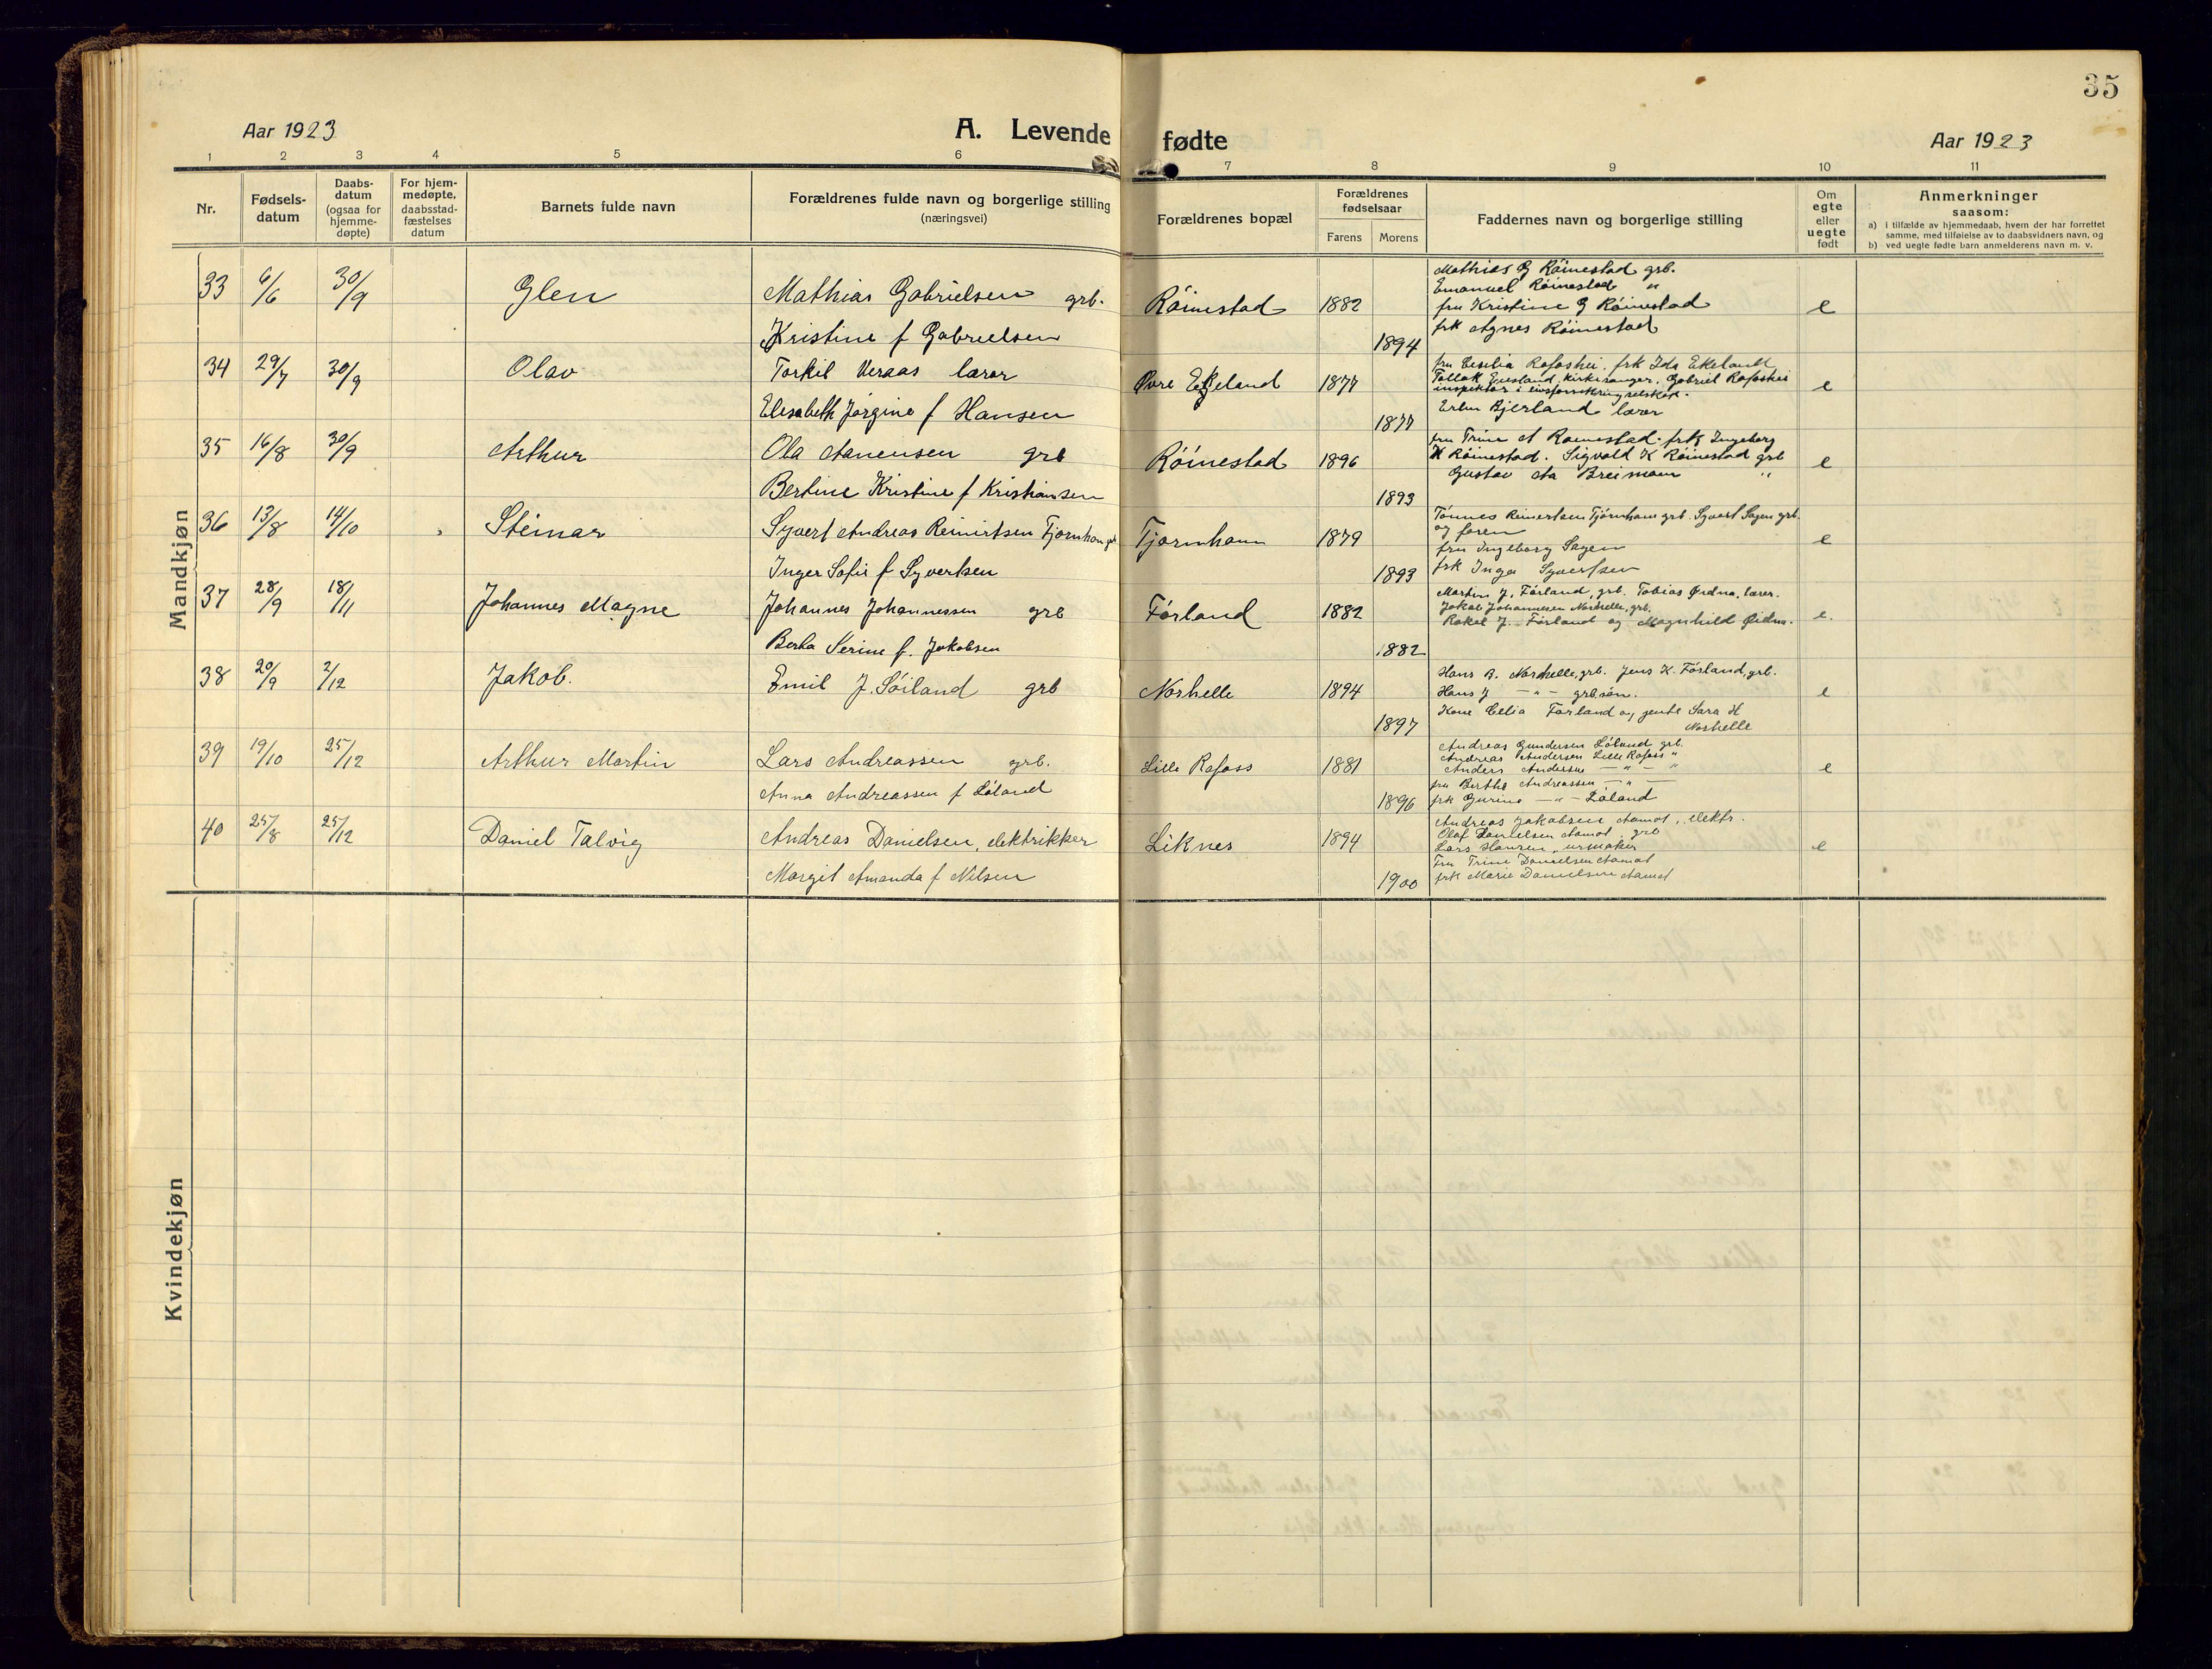 35
Aar 1923
A. Levende fødte
Aar 1923
1 2 3 4 5 6 7 8 9 10 11
Nr.
Fødsels-
datum
Daabs-
datum
(ogsaa for
hjemme-
døpte)
For hjem-
medøpte,
daabsstad-
fæstelses
datum
Barnets fulde navn
Forældrenes fulde navn og borgerlige stilling
(næringsvei)
Forældrenes bopæl
Forældrenes
fødselsaar
Farens Morens
Faddernes navn og borgerlige stilling
Om
egte
eller
uegte
født
Anmerkninger
saasom:
a) i tilfælde av hjemmedaab, hvem der har forrettet
samme, med tilføielse av to daabsvidners navn, og
b) ved uegte fødte barn anmelderens navn m. v.
Mandkjøn
33 6/6 30/9 Glen Mathias Gabrielsen grb. Röinestad 1882 e
Kristine f Gabrielsen 1894
Mathias G Röinestad grb.
Emanuel Röinestad "
fru Kristine G Röinestad
frk Agnes Röinestad
34 29/7 30/9 Olav Torkil Veraas lærer Øvre Egeland 1877 e
Elisabeth Jörgine f Hansen 1877
fru Cesilia Rafoshei. frk Ida Ekeland
Tollak Egeland, kirkesanger. Gabriel Rafoshei
inspektør i livsforsikringsselskap.
Bjerland lærer
35 16/8 30/9 Arthur Ola Aanensen grb Röinestad 1896 e
Bertine Kristine f Kristiansen 1893
fru Trine A Röinestad. frk Ingeborg
K Röinestad. Sigvald K Röinestad grb
Gustav Aa Breimoen "
36 13/8 14/10 Steinar Syvert Andreas Reinertsen Tjörnham grb Tjörnhom 1879 e
Inger Sofie f Syvertsen 1893
Tönnes Reinertsen Tjörnham grb. Syvert Sagen grb.
og faren
fru Ingeborg Sagen
frk Inga Syvertsen
37 28/9 18/11 Johannes Magne Johannes Johannessen grb Förland 1882 e.
Berta Serine f. Jakobsen 1882
Martin J. Förland, grb. Tobias Ødna, lærer.
Jakob Johannesen Norhelle, grb.
Rakel J. Förland og Magnhild Ødna.
38 20/9 2/12 Jakob. Emil J. Söiland grb Norhelle 1894 e
1897
Hans B. Norhelle, grb. Jens K. Förland, grb.
Hans J — " — grb.sön.
Kone Celia Förland og jente Sara H
Norhelle
39 19/10 25/12 Arthur Martin Lars Andreassen grb. Lille Rafoss 1881 e
Anna Andreassen f Löland 1896
Andreas Gundersen Löland grb.
Andreas Andersen Lille Rafoss "
Anders Andersen — " — "
fru Berthe Andreassen — " —
frk Gurine — " — Löland
40 25/8 25/12 Daniel Talvig Andreas Danielsen, elektrikker Liknes 1894 e
Margit Amanda f Nilsen 1900
Andreas Jakobsen Aamot, elektr.
Olaf Danielsen Aamot, grb
Lars Hansen, urmaker
Fru Trine Danielsen Aamot
frk Marie Danielsen Aamot
Kvindekjøn